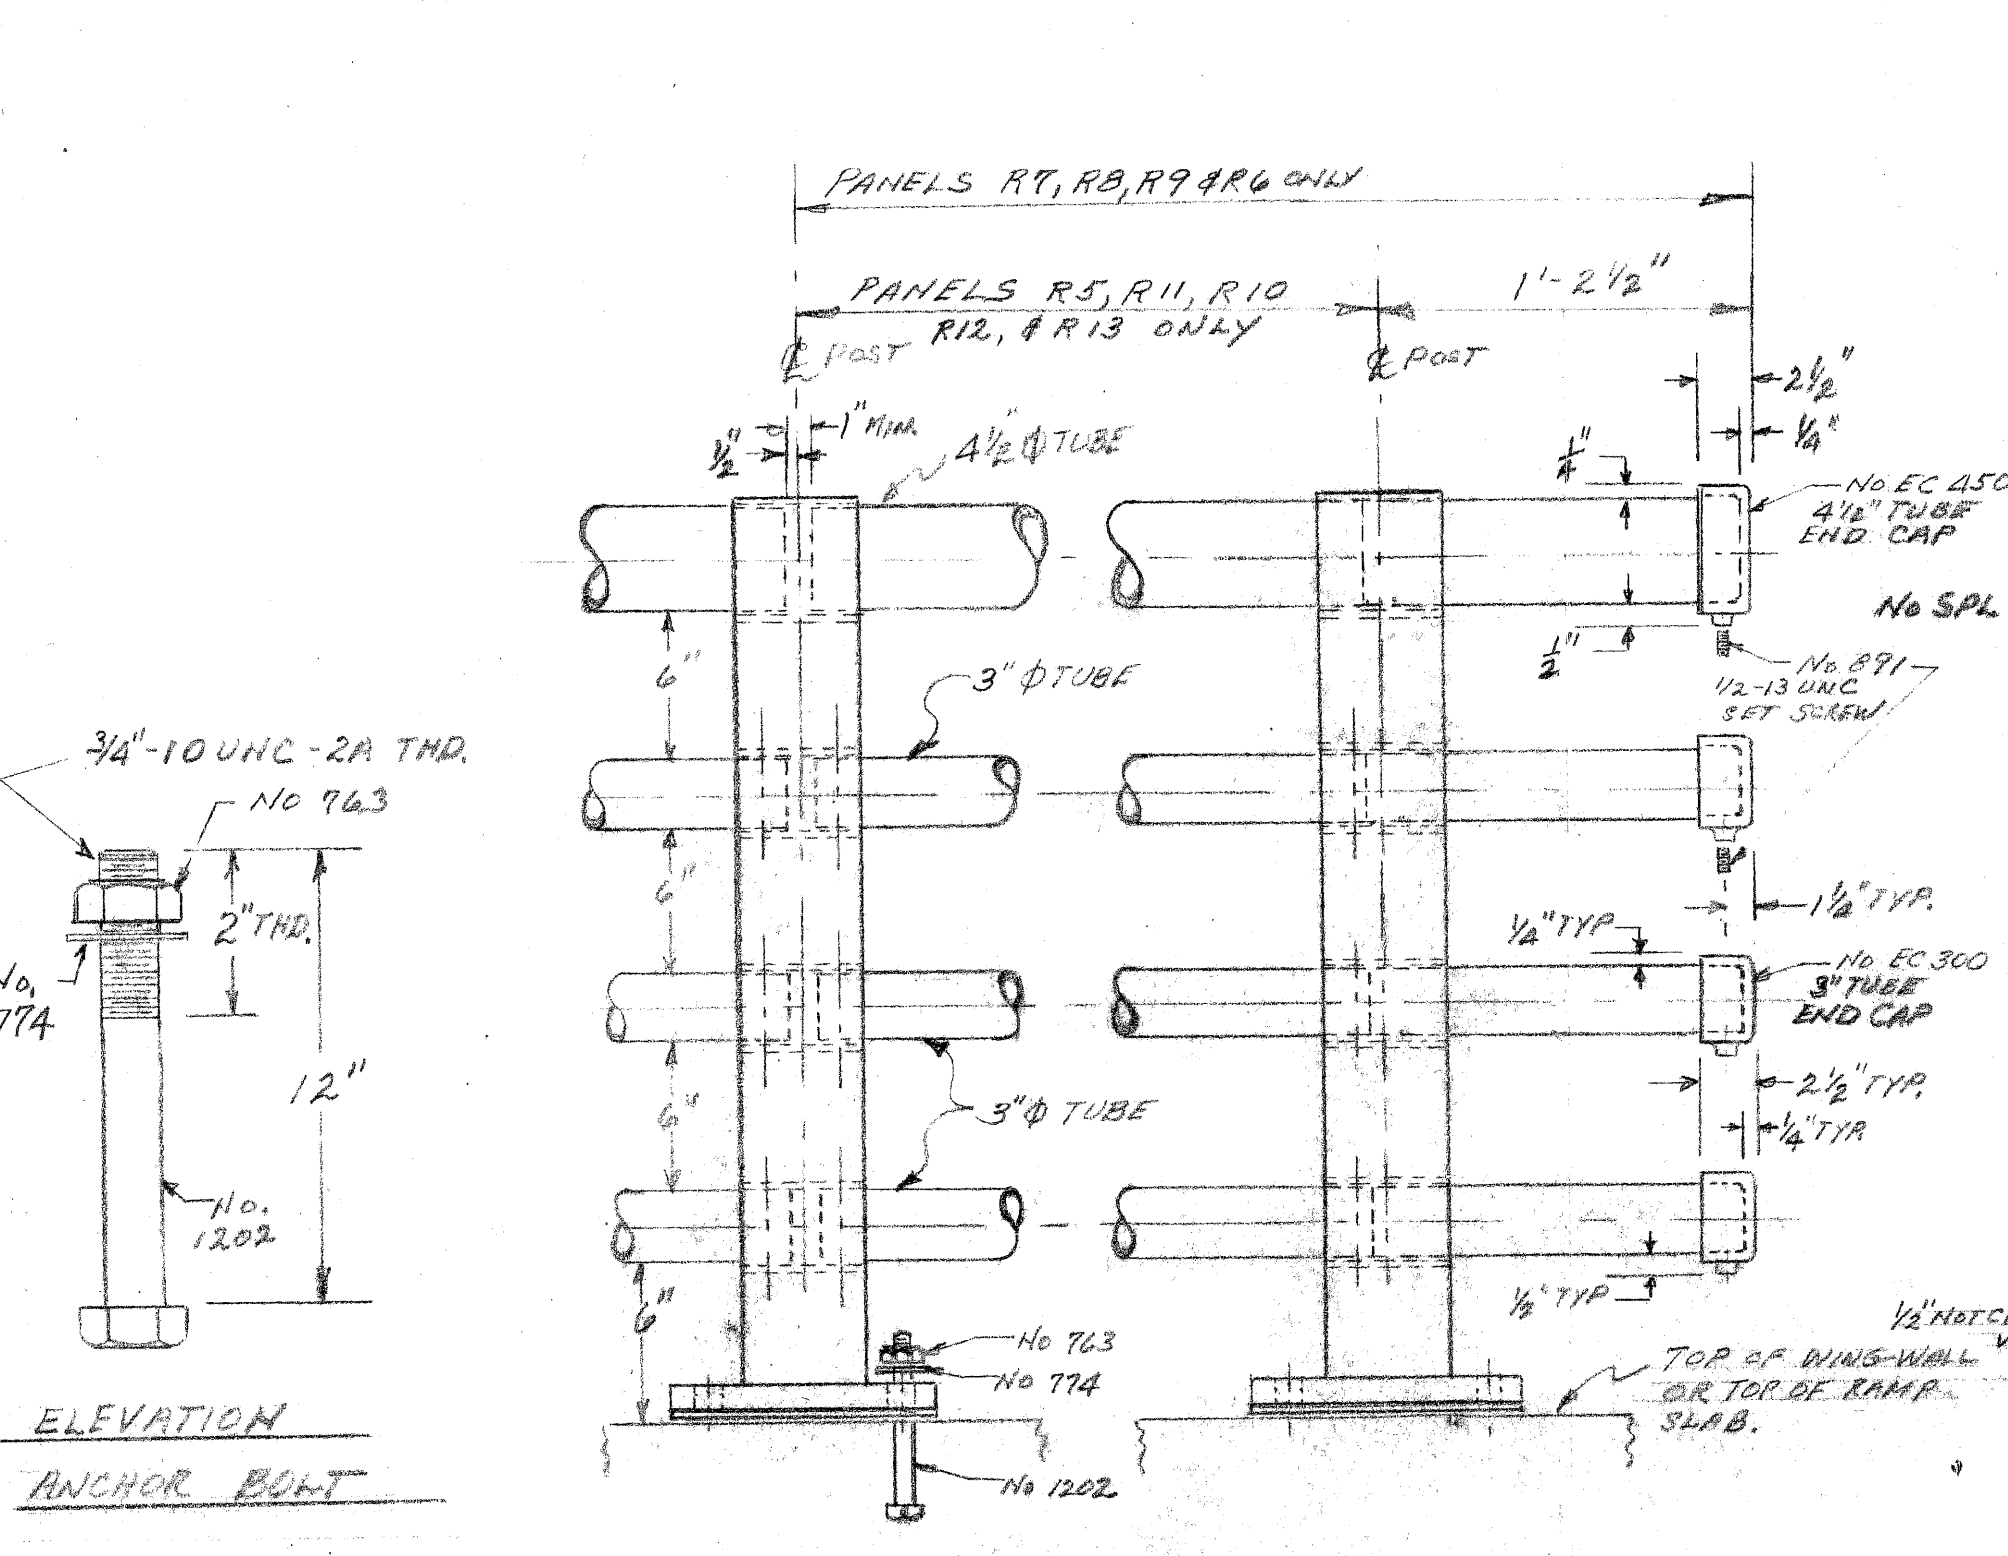 PANELS R7, R8, R9 & R6 ONLY
PANELS R5, R11, R10
R12, & R13 ONLY
1'-2 1/2"
℄ POST
℄ POST
2 1/2"
1/4"
1/2"
1" MIN.
4 1/2" Φ TUBE
1/4"
No EC 450
4 1/2" TUBE
END CAP
No SPL
1/2"
No 891
1/2-13 UNC
SET SCREW
6"
3" Φ TUBE
3/4"-10 UNC-2A THD.
No 763
2" THD.
6"
1 1/4" TYP.
1/4" TYP
No EC 300
3" TUBE
END CAP
No.
774
12"
6"
3" Φ TUBE
2 1/2" TYP.
1/4" TYP.
No.
1202
6"
1/2" TYP
No 763
No 774
TOP OF WING-WALL
OR TOP OF RAMP
SLAB.
No 1202
ELEVATION
ANCHOR BOLT